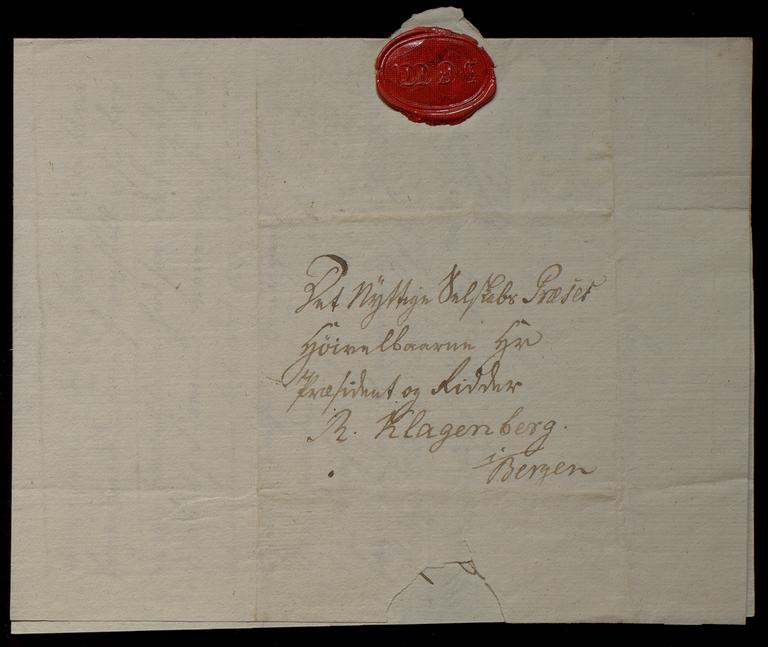 Det Nÿttige Selskabs Præses
Höivelbaarne Hr
Præsident og Ridder
R. Klagenberg.
i Bergen